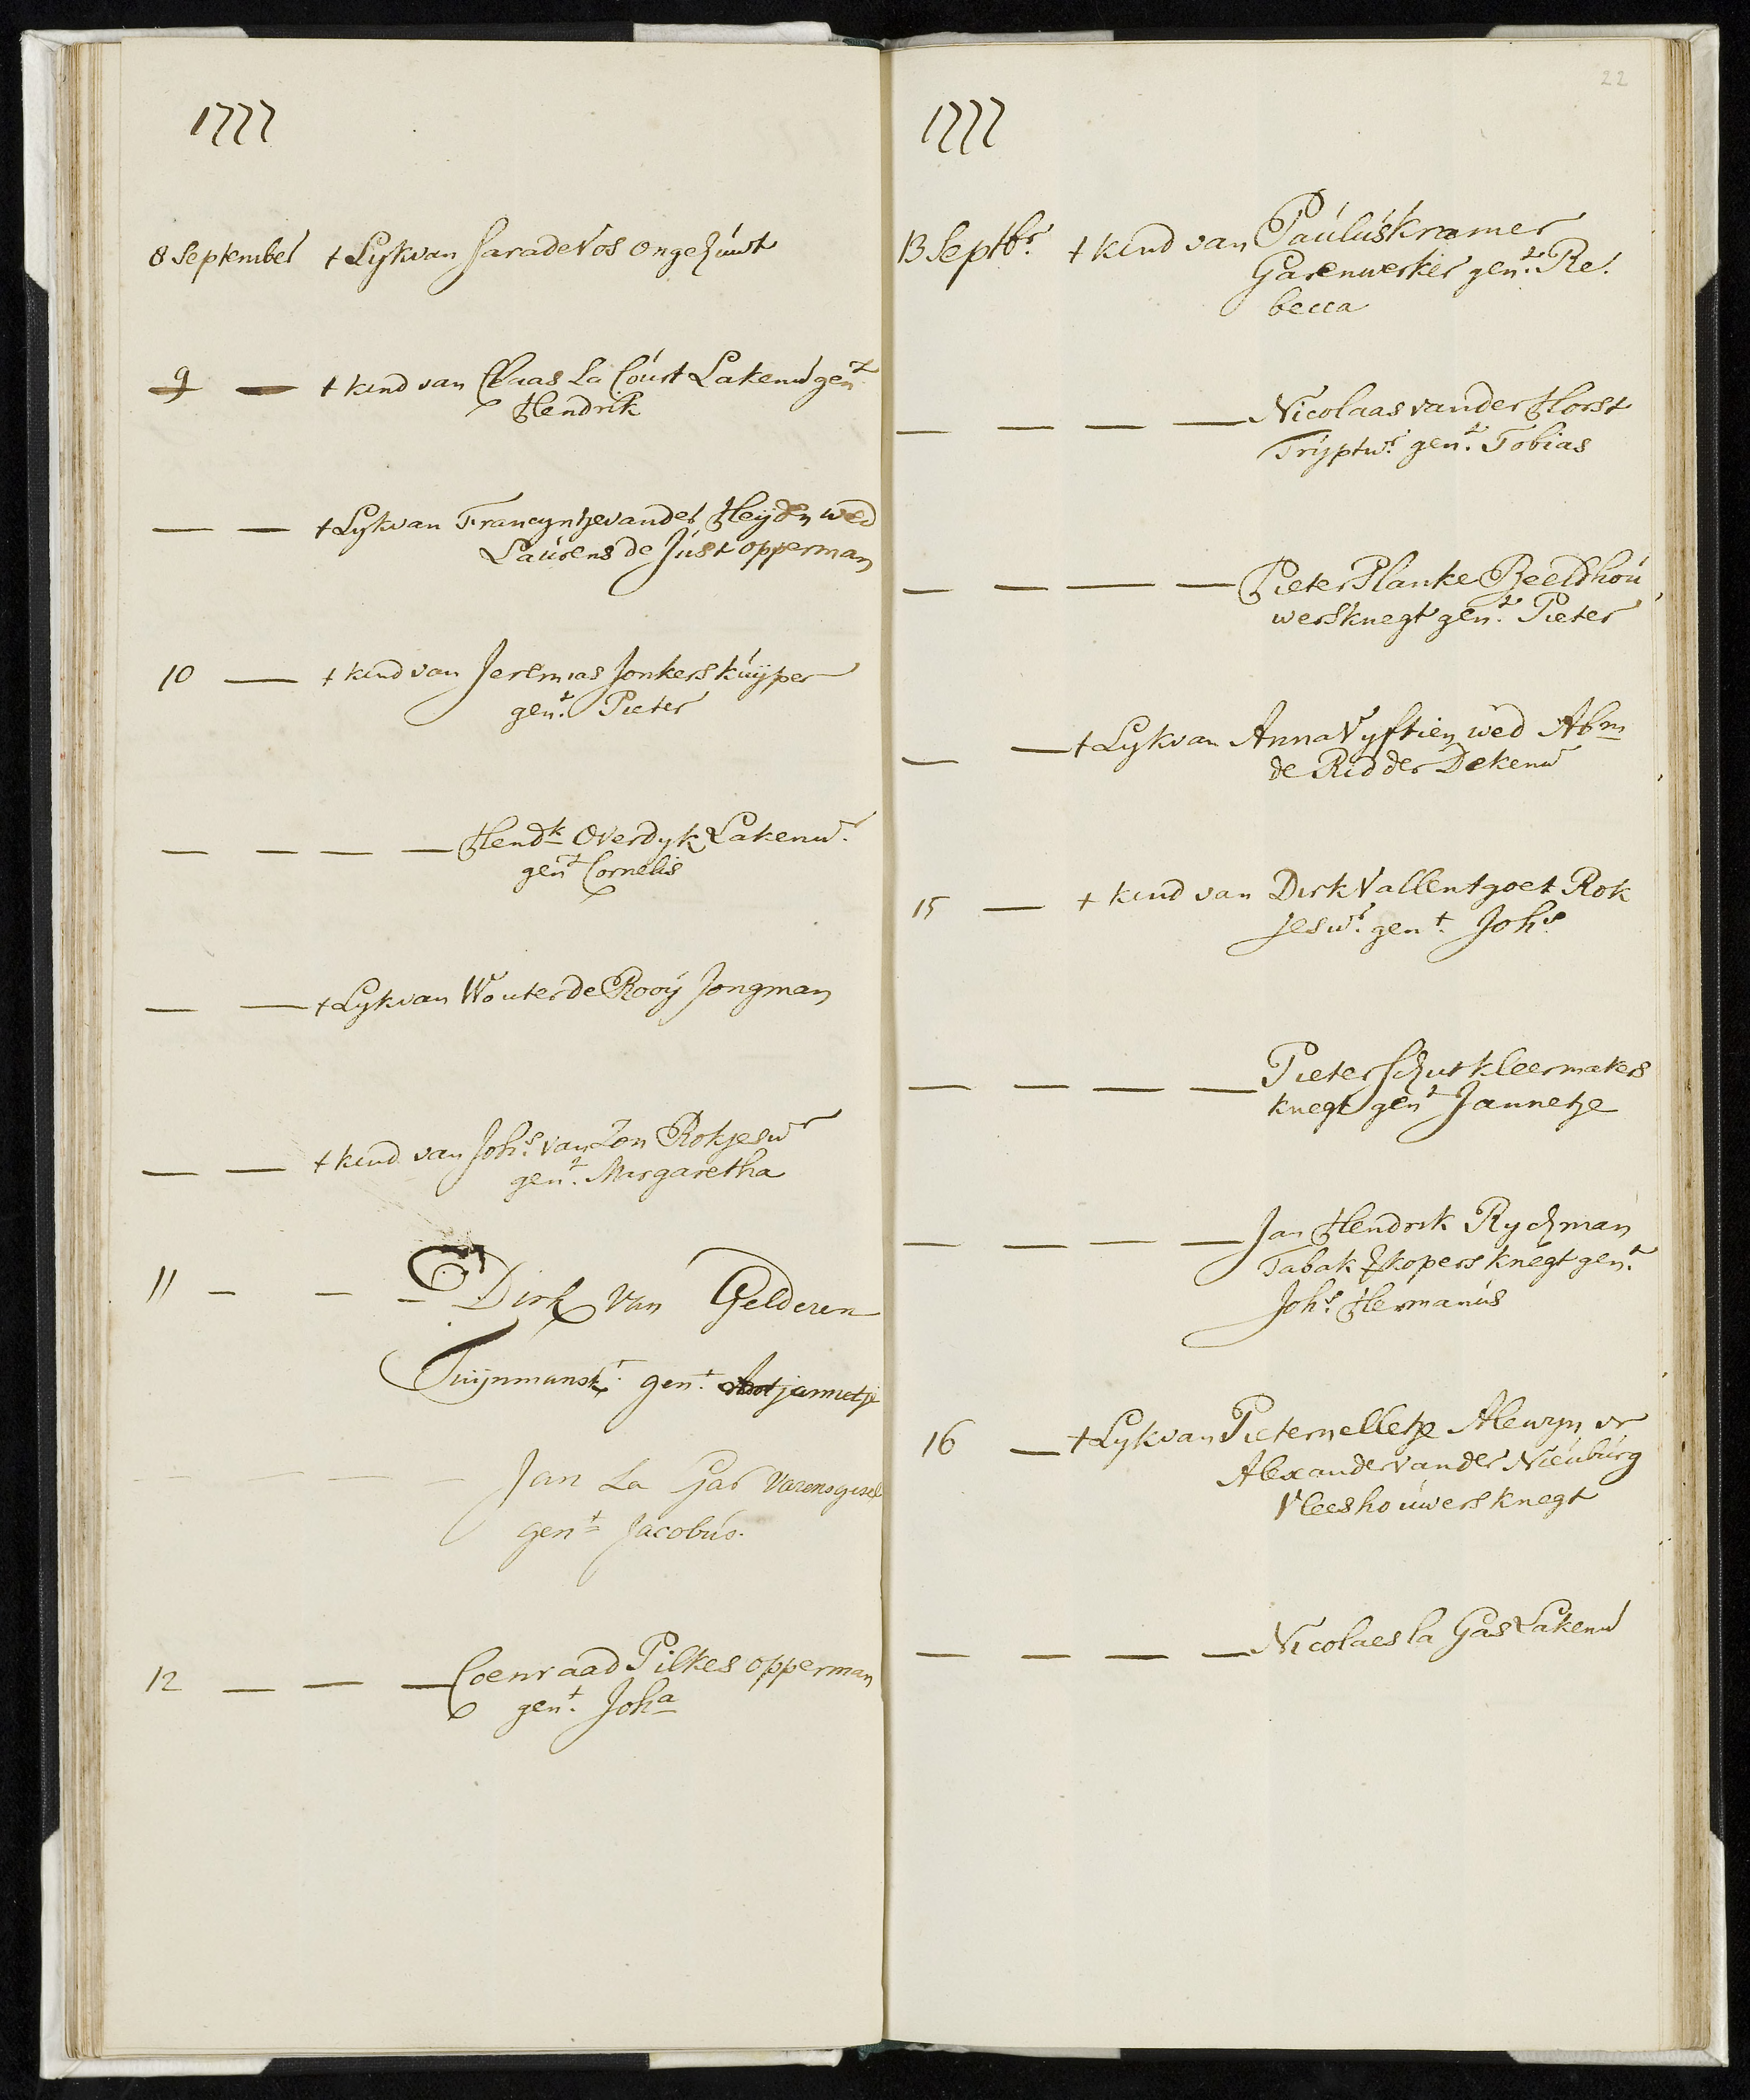 1777
8 September † Lyk van Sara de Vos ongehuwt
9 — † kind van Claas La Court Lakenw gent
Hendrik
— — † Lyk van Francyntje vander Heijden wed
Laurens de Just opperman
10 — † kind van Jeremias Jonkers kuijper
gent. Pieter
— — — — Hendk Overdyk Lakenwr.
gent Cornelis
— — † Lyk van Wouter de Rooij Jongman
— — † kind van Johs. van Zon Rokjeswr
gent. Margaretha
11 — — — Dirk van Gelderen
Tuijnmansk. gent. Jannetje
— — — — Jan La Gas Varensgesel
gent Jacobus.
12 — — — Coenraad Pilkes opperman
gent. Joha
22
1777
13 Septbr. † kind van Paulus Kramer
Garenwerker gent. Re.
becca
— — — — Nicolaas vander Horst
Trijptwr. gent. Tobias
— — — — Pieter Planke Beeldhou
wersknegt gent. Pieter
— — † Lyk van Anna Vyftien wed Abm
de Ridder Dekenw
15 — † kind van Dirk Vallentgoet Rok
jeswr. gent. Johs
— — — — Pieter Schut kleermakers
knegt gent Jannetje
— — — — Jan Hendrik Rychman
Tabakkopers knegt gent.
Johs. Hermanus
16 — † Lyk van Pieternelletje Alewyn vr
Alexander vander Nieuburg
Vleeshouwersknegt
— — — — Nicolaes la Gas Lakenw